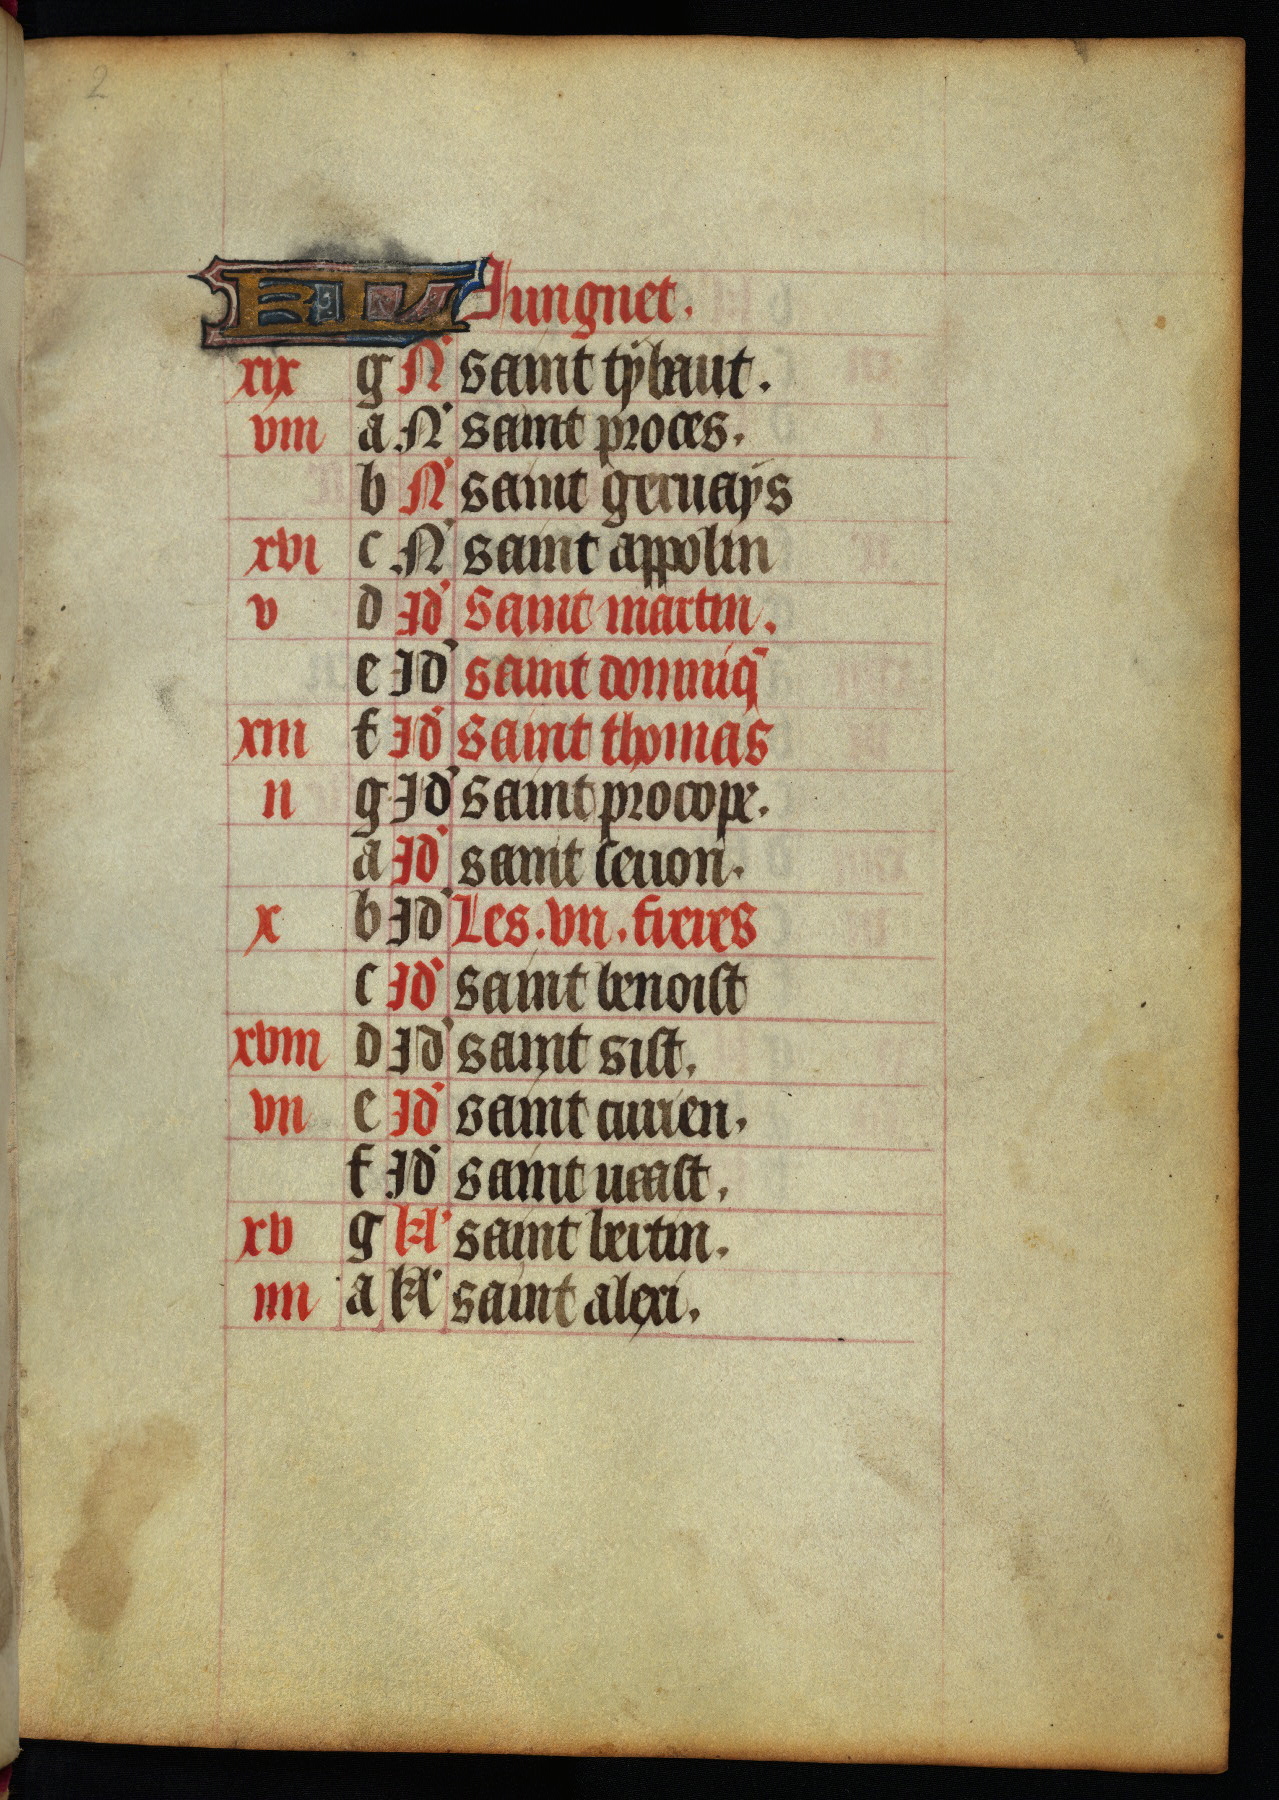 2
KL Jungnet.
xix g N saint tybaut.
viii a N saint proces.
b N saint geruays
xvi c N saint appolin
v d Id saint martin.
e Id saint dominiq
xiii f Id saint thomas
ii g Id saint procope.
a Id saint ceuon.
x b Id Les .vii. freres
c Id saint benoist
xviii d Id saint sist.
vii e Id saint curien.
f Id saint veast.
xv g kl saint bertin.
iiii a kl saint alexi.